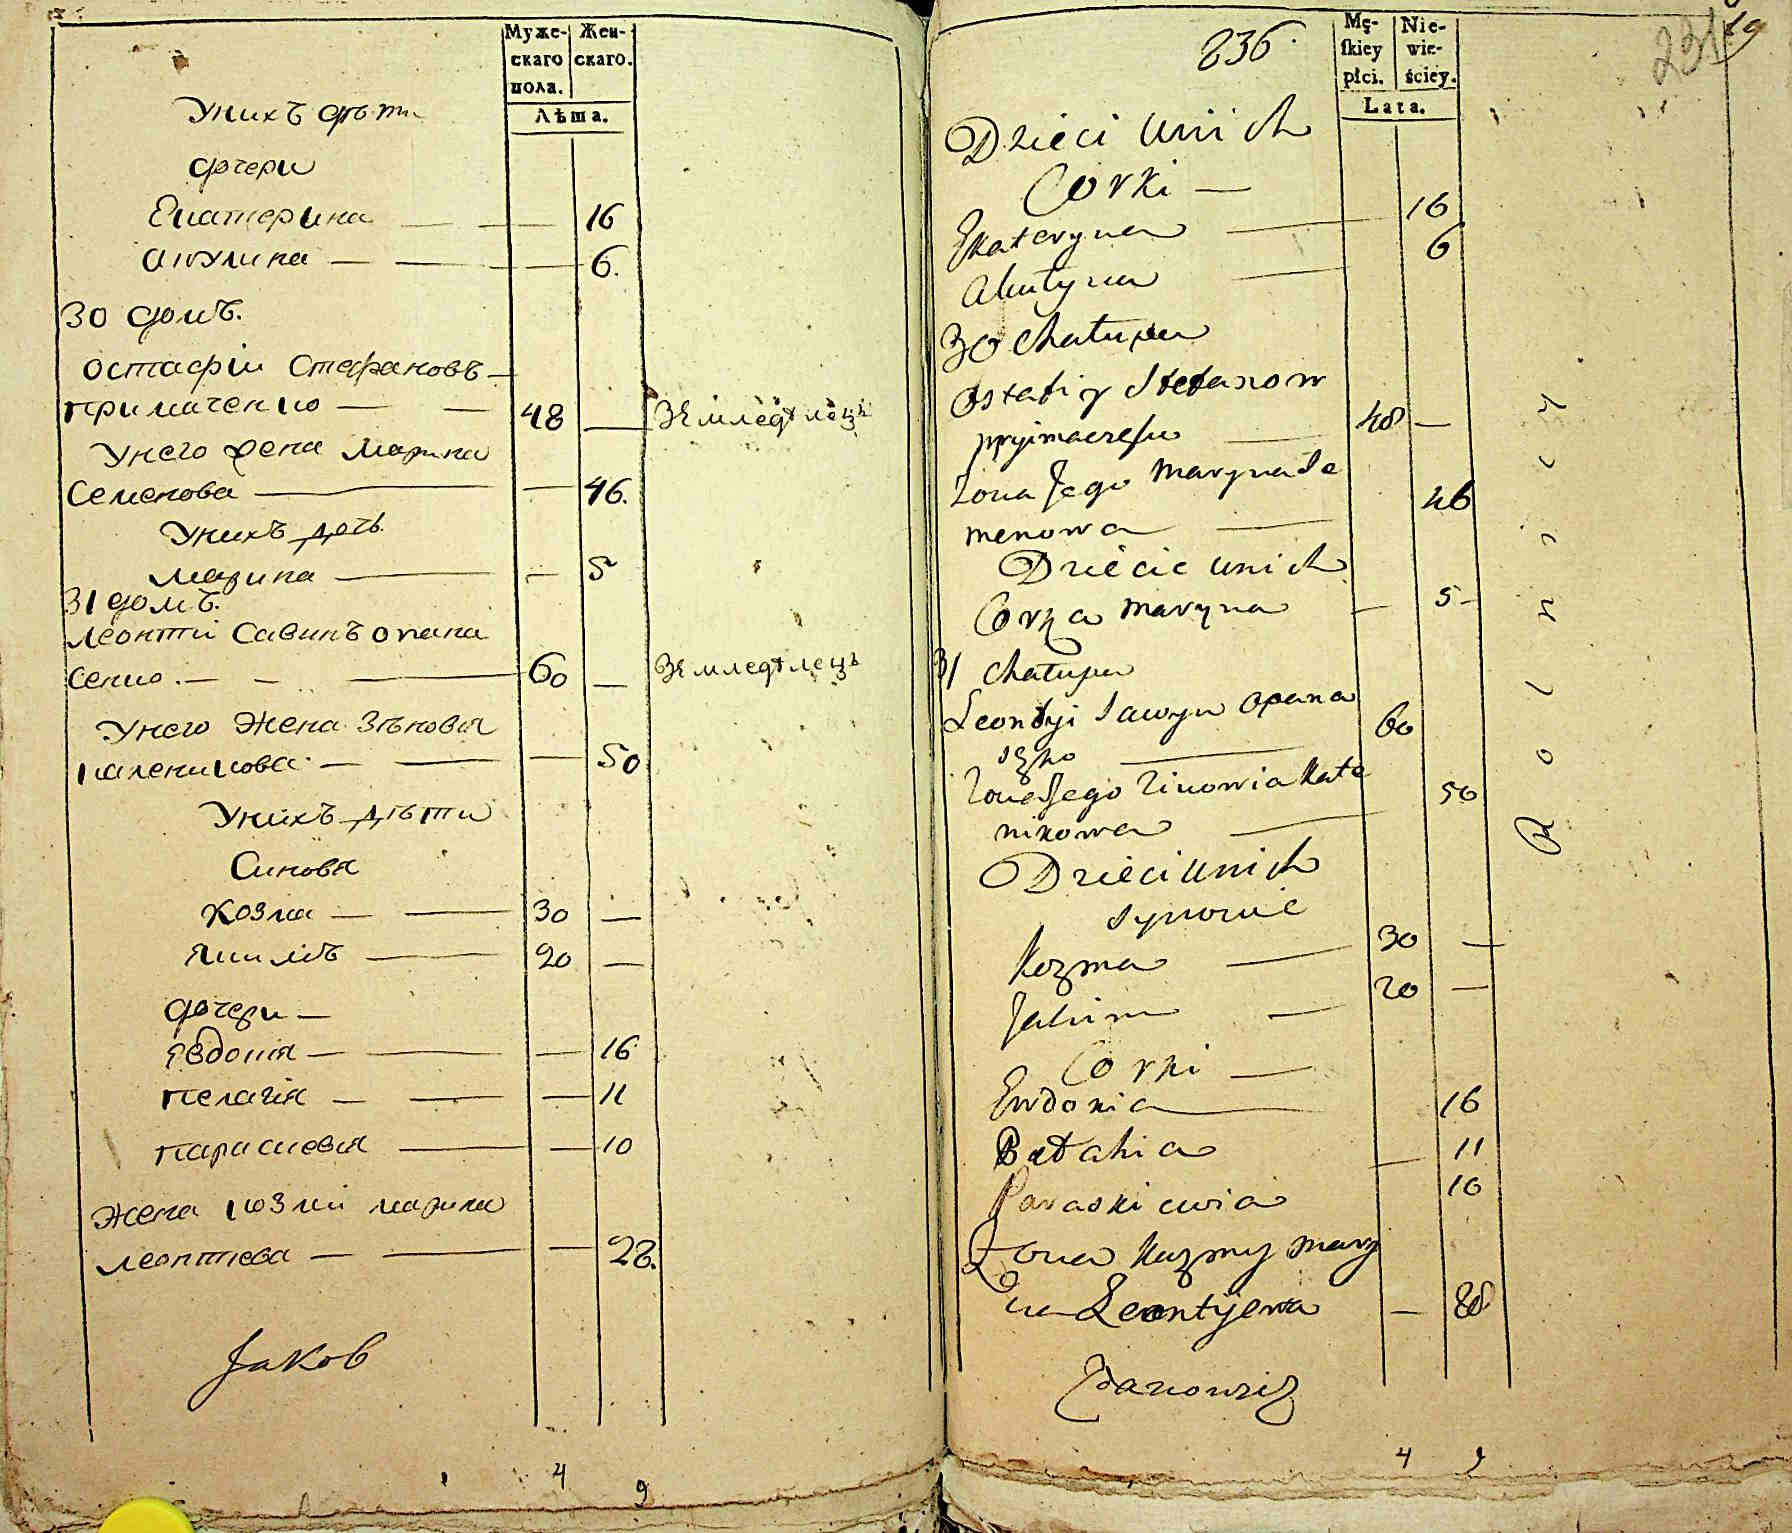 Муже-
скаго
пола.
Жен-
скаго.
Лѣта.
Унихъ дѣти
дочери
Екатерина — 16
Акулина — 6.
30 домъ.
Остафій Стефановъ
Примаченко — 48 — Земледѣлецъ
Унего жена Марина
Семенова — 46.
Унихъ дочь
Марина — 5
31 домъ.
Леонтій Савинъ опана
сенко. — 60 — Земледѣлецъ
Унего жена Зѣновия
каленикова — 50
Унихъ дѣти
Синовя
Козма — 30 —
Якимъ — 20 —
дочери —
Явдокия — 16
Пелагия — 11
Параскевия — 10
Жена Козми Марина
Леонтиева — 28.
Jakob
4 9
836.
231
Mę-
skiey
płci.
Nie-
wie-
ściey.
Lata.
Dzieci unich
Corki —
Ekateryna — 16
Akulyna — 6
30 Chałupa
Ostafiy Stefanow
pryimaczeńko — 48 —
Żona Jego Maryna Se
menowa — 46
Dziecie unich
Corka Maryna — 5 —
31 Chałupa
Leontyi Sawyn Opana
seńko — 60
Żona Jego Zinowia Kale
nikowa — 50
Dzieci Unich
Synowie
Kozma — 30 —
Jakim — 20 —
Corki —
Ewdokia — 16
Pelahia — 11
Paraskiewia 10
Żona Kozmy Mary
na Leontijewa — 28
Zdanowicz
4 9
Rolniczy